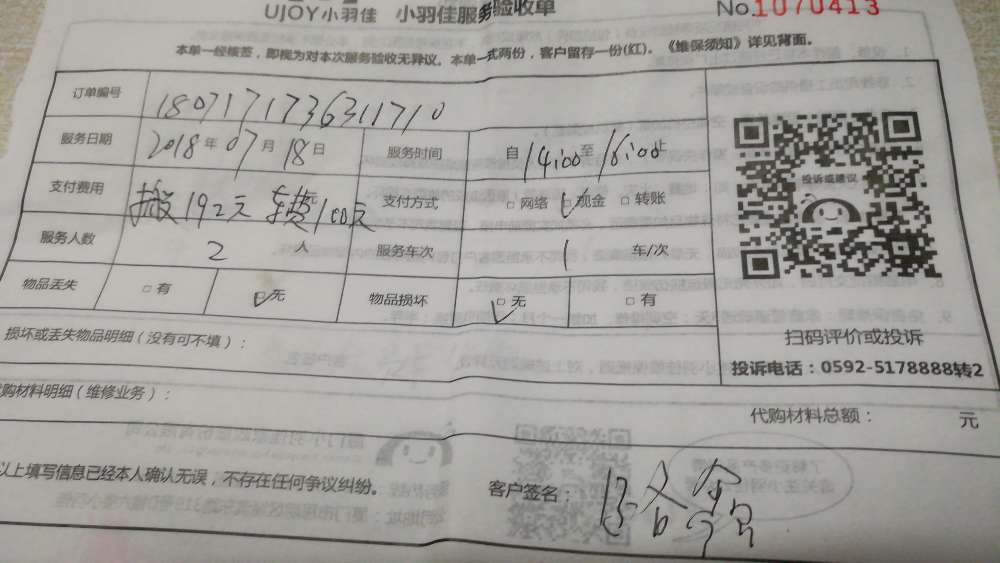 UJOY小羽佳 小羽佳服务验收单 No.1070413
本单一经核签，即视为对本次服务验收无异议。本单一式两份，客户留存一份(红)。《维保须知》详见背面。
订单编号 180717173631 1710
服务日期 2018年07月18日 服务时间 自14:00至16:00止
支付费用 搬192元 车费100元 支付方式 □网络 ☑现金 □转账
服务人数 2人 服务车次 1 车/次
物品丢失 □有 ☑无 物品损坏 ☑无 □有
投诉或建议
损坏或丢失物品明细（没有可不填）：
扫码评价或投诉
投诉电话：0592-5178888转2
代购材料明细（维修业务）：
代购材料总额： 元
以上填写信息已经本人确认无误，不存在任何争议纠纷。
客户签名：